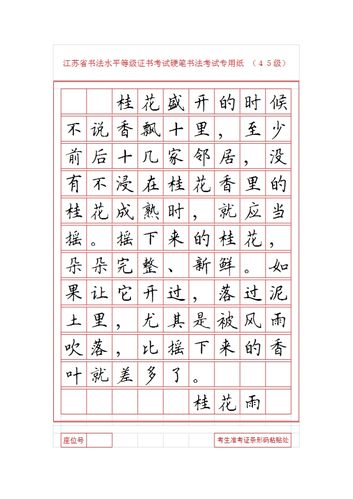 江苏省书法水平等级证书考试硬笔书法考试专用纸 （４５级）
桂花盛开的时候
不说香飘十里，至少
前后十几家邻居，没
有不浸在桂花香里的
桂花成熟时，就应当
摇。摇下来的桂花，
朵朵完整、新鲜。如
果让它开过，落过泥
土里，尤其是被风雨
吹落，比摇下来的香
叶就差多了。
桂花雨
座位号
考生准考证条形码粘贴处